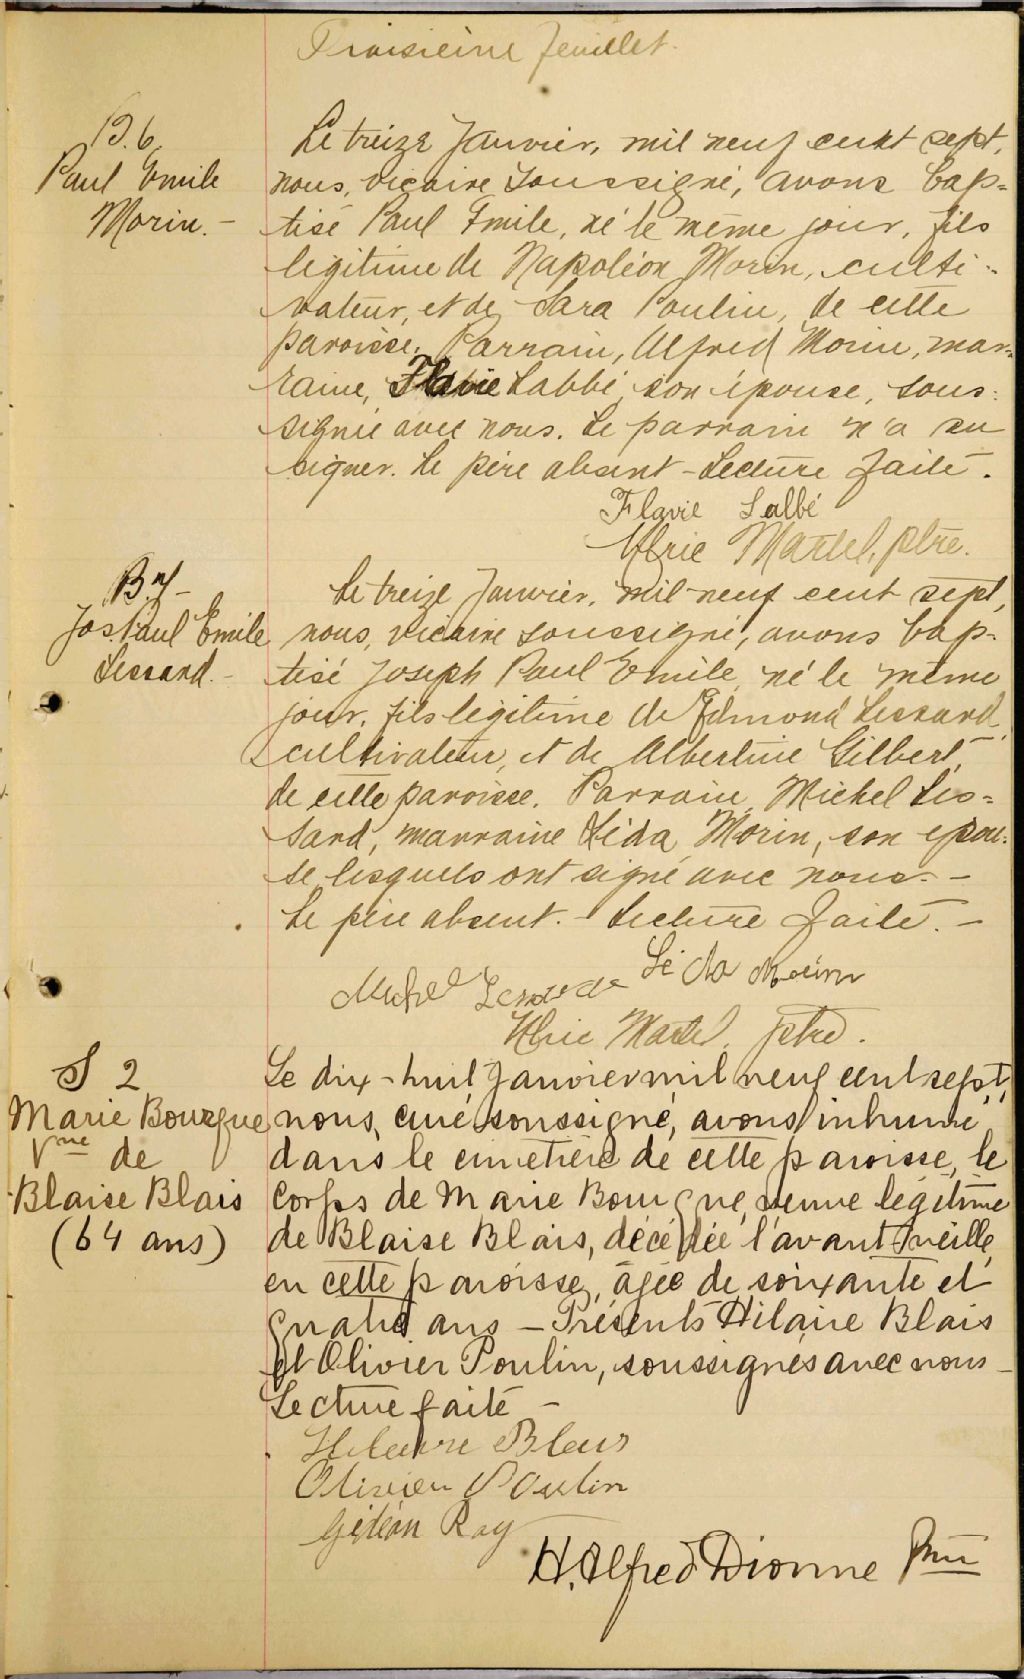 Troisième feuillet.
B. 6
Paul Emile
Morin. -
Le treize Janvier, mil neuf cent sept,
nous, vicaire soussigné, avons bap-
tisé Paul Emile, né le même jour, fils
légitime de Napoléon Morin, culti-
vateur, et de Sara Poulin, de cette
paroisse. Parrain, Alfred Morin, mar-
raine, Flavie Labbé, son épouse, sous-
signée avec nous. Le parrain n'a su
signer. Le père absent - Lecture faite.
Flavie Labbé
Ulric Martel, ptre.
B. 7 -
Jos Paul Emile
Lessard. -
Le treize Janvier, mil-neuf cent sept,
nous, vicaire soussigné, avons bap-
tisé Joseph Paul Emile, né le même
jour, fils légitime de Edmond Lessard,
cultivateur, et de Albertine Gilbert,
de cette paroisse. Parrain, Michel Les-
sard, marraine Léda Morin, son épou-
se, lesquels ont signé avec nous. -
Le père absent. - Lecture faite. -
Léda Morin
Michel Lessard
Ulric Martel, ptre.
S 2
Marie Bourque
Vve de
Blaise Blais
(64 ans)
Le dix-huit Janvier mil neuf cent sept,
nous, curé soussigné, avons inhumé
dans le cimetière de cette paroisse, le
corps de Marie Bourque, veuve légitime
de Blaise Blais, décédée l'avant veille,
en cette paroisse, âgée de soixante et
quatre ans - Présents Hilaire Blais
et Olivier Poulin, soussignés avec nous -
Lecture faite -
Hilaire Blais
Olivier Poulin
Gédéon Roy
H. Alfred Dionne Ptre